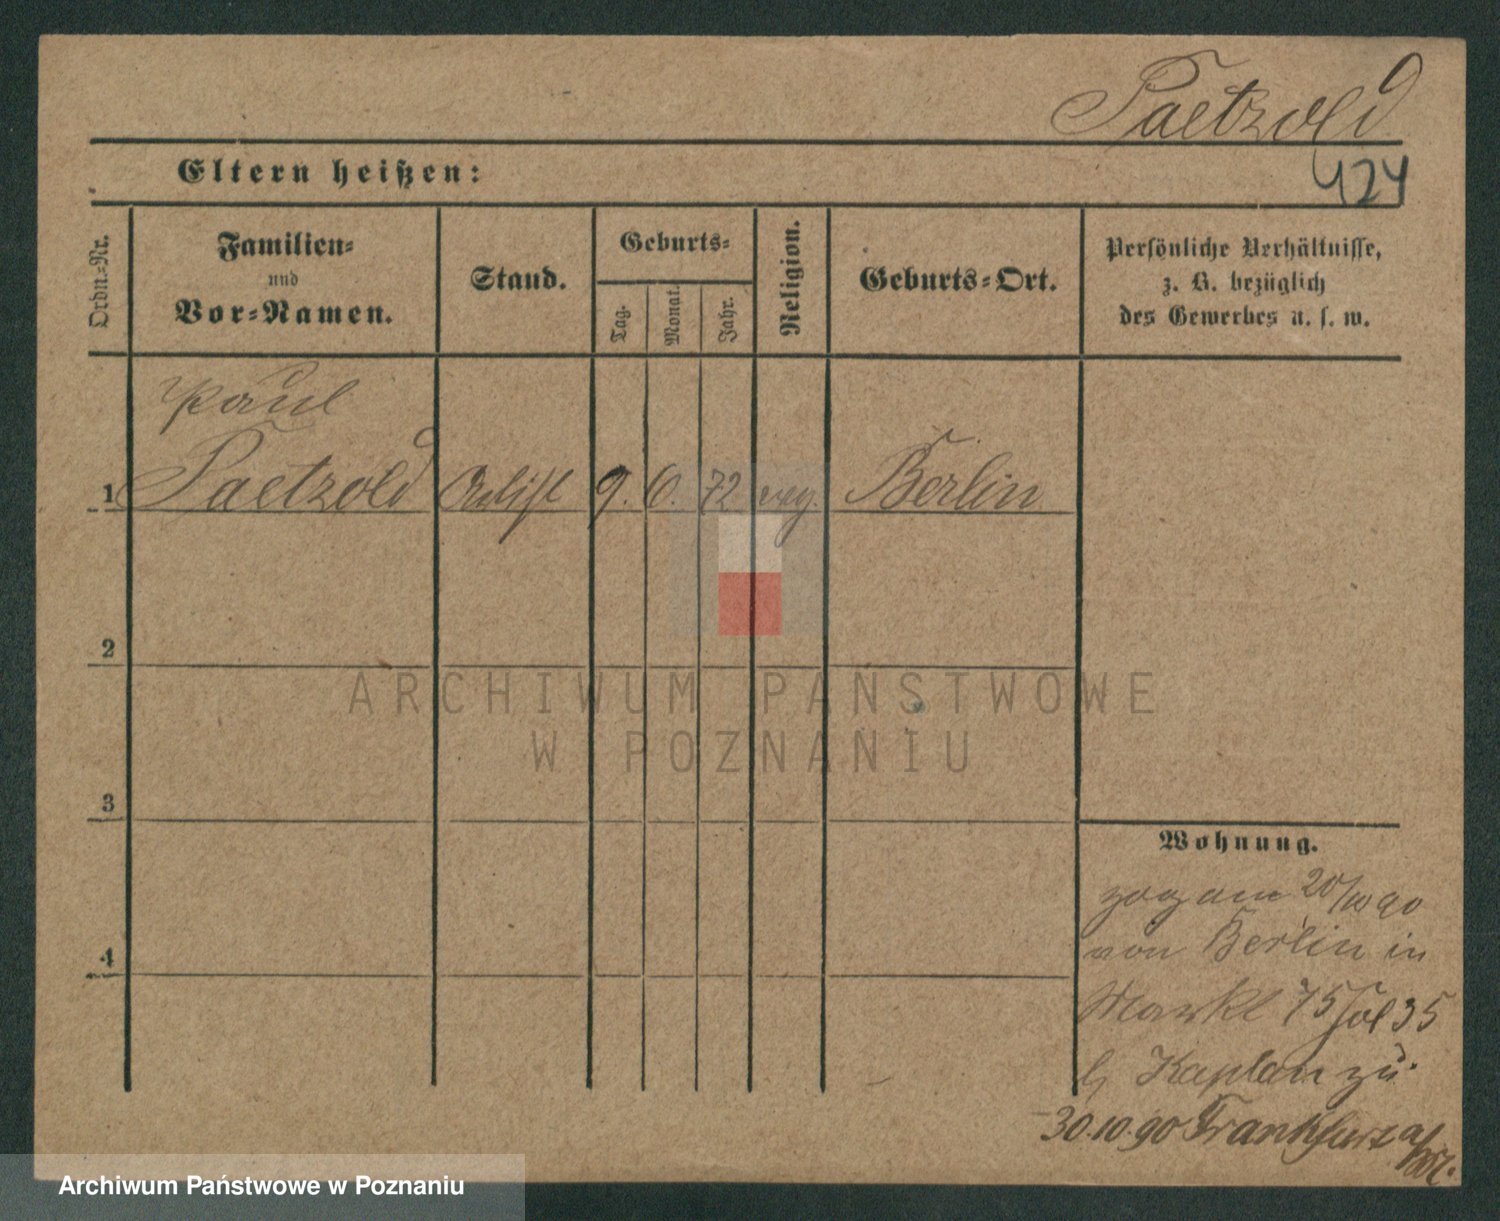 Paetzold
424
Eltern heißen:
Ordn.=Nr.
Familien=
und
Vor=Namen.
Stand.
Geburts=
Tag.
Monat.
Jahr.
Religion.
Geburts=Ort.
Persönliche Verhältnisse,
z. B. bezüglich
des Gewerbes u. s. w.
Paul
1 Paetzold 9. 6. 72 evg. Berlin
2
3
4
Wohnung.
zog am 20/10 90
von Berlin in
Markt 75 35
b Kaplan zu.
30.10.90 Frankfurt a/
ARCHIWUM PAŃSTWOWE
W POZNANIU
Archiwum Państwowe w Poznaniu